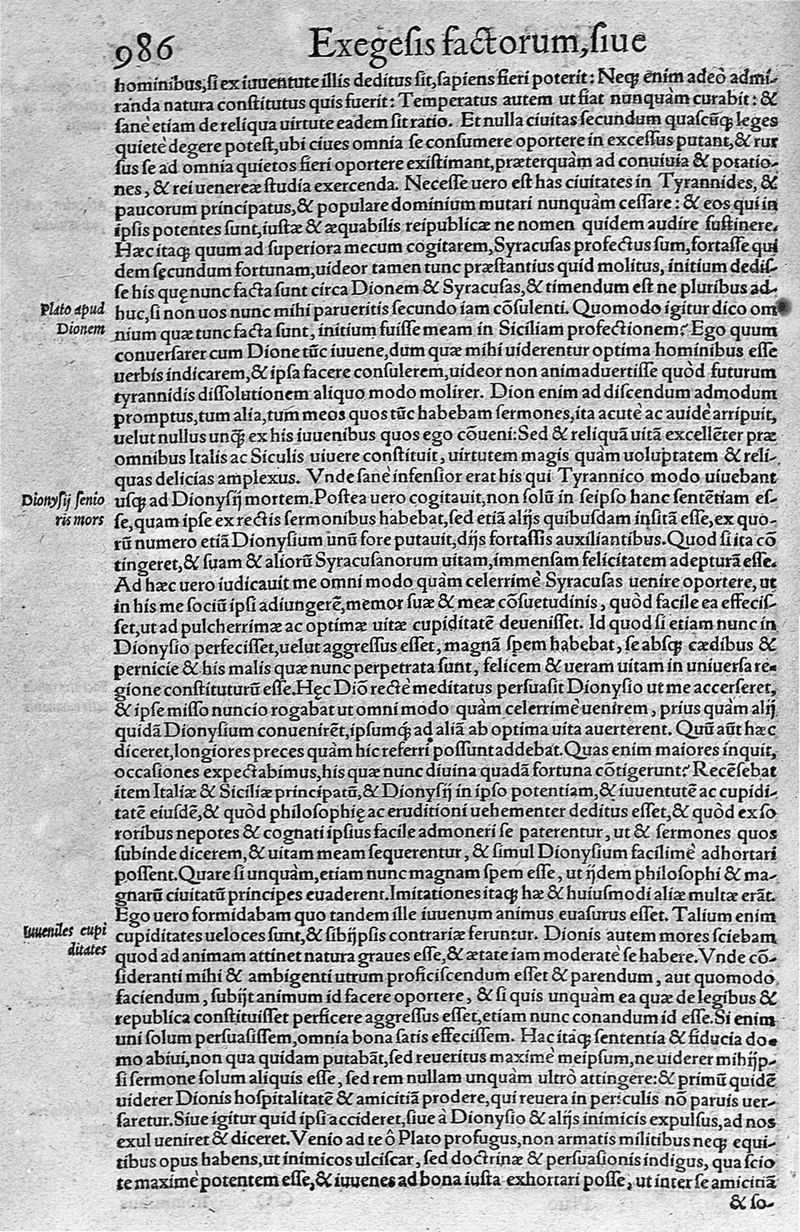 986 Exegesis factorum, siue
hominibus, si ex iuuentute illis deditus sit, sapiens fieri poterit: Neqꝫ enim adeò admi-
randa natura constitutus quis fuerit: Temperatus autem ut fiat nunquàm curabit: &
sanè etiam de reliqua uirtute eadem sit ratio. Et nulla ciuitas secundum quascũqꝫ leges
quietè degere potest, ubi ciues omnia se consumere oportere in excessus putant, & rur
sus se ad omnia quietos fieri oportere existimant, præterquàm ad conuiuia & potatio-
nes, & rei uenereæ studia exercenda. Necesse uero est has ciuitates in Tyrannides, &
paucorum principatus, & populare dominium mutari nunquàm cessare: & eos qui in
ipsis potentes sunt, iustæ & æquabilis reipublicæ ne nomen quidem audire sustinere.
Hæc itaqꝫ quum ad superiora mecum cogitarem, Syracusas profectus sum, fortasse qui
dem secundum fortunam, uideor tamen tunc præstantius quid molitus, initium dedis-
se his quę nunc facta sunt circa Dionem & Syracusas, & timendum est ne pluribus ad-
Plato apud
Dionem
huc, si non uos nunc mihi parueritis secundo iam cõsulenti. Quomodo igitur dico om
nium quæ tunc facta sunt, initium fuisse meam in Siciliam profectionem? Ego quum
conuersarer cum Dione tũc iuuene, dum quæ mihi uiderentur optima hominibus esse
uerbis indicarem, & ipsa facere consulerem, uideor non animaduertisse quòd futurum
tyrannidis dissolutionem aliquo modo molirer. Dion enim ad discendum admodum
promptus, tum alia, tum meos quos tũc habebam sermones, ita acutè ac auidè arripuit,
uelut nullus unqꝫ̃ ex his iuuenibus quos ego cõueni: Sed & reliquã uitã excellẽter præ
omnibus Italis ac Siculis uiuere constituit, uirtutem magis quàm uoluptatem & reli-
quas delicias amplexus. Vnde sanè infensior erat his qui Tyrannico modo uiuebant
Dionysij senio
ris mors
usqꝫ ad Dionysij mortem. Postea uero cogitauit, non solũ in seipso hanc sentẽtiam es-
se, quam ipse ex rectis sermonibus habebat, sed etiã alijs quibusdam insitã esse, ex quo-
rũ numero etiã Dionysium unũ fore putauit, dijs fortassis auxiliantibus. Quod si ita cõ
tingeret, & suam & aliorũ Syracusanorum uitam, immensam felicitatem adepturã esse.
Ad hæc uero iudicauit me omni modo quàm celerrimè Syracusas uenire oportere, ut
in his me sociũ ipsi adiungerẽ, memor suæ & meæ cõsuetudinis, quòd facile ea effecis-
set, ut ad pulcherrimæ ac optimæ uitæ cupiditatẽ deuenisset. Id quod si etiam nunc in
Dionysio perfecisset, uelut aggressus esset, magnã spem habebat, se absqꝫ cædibus &
pernicie & his malis quæ nunc perpetrata sunt, felicem & ueram uitam in uniuersa re-
gione constituturũ esse. Hęc Diõ rectè meditatus persuasit Dionysio ut me accerseret,
& ipse misso nuncio rogabat ut omni modo quàm celerrimè uenirem, prius quàm alij
quidã Dionysium conuenirẽt, ipsumqꝫ ad aliã ab optima uita auerterent. Quũ aũt hæc
diceret, longiores preces quàm hic referri possunt addebat. Quas enim maiores inquit,
occasiones expectabimus, his quæ nunc diuina quadã fortuna cõtigerunt? Recẽsebat
item Italiæ & Siciliæ principatũ, & Dionysij in ipso potentiam, & iuuentutẽ ac cupidi-
tatẽ eiusdẽ, & quòd philosophię ac eruditioni uehementer deditus esset, & quòd ex so
roribus nepotes & cognati ipsius facile admoneri se paterentur, ut & sermones quos
subinde dicerem, & uitam meam sequerentur, & simul Dionysium facilimè adhortari
possent. Quare si unquàm, etiam nunc magnam spem esse, ut ijdem philosophi & ma-
gnarũ ciuitatũ principes euaderent. Imitationes itaqꝫ hæ & huiusmodi aliæ multæ erãt.
Ego uero formidabam quo tandem ille iuuenum animus euasurus esset. Talium enim
Iuueniles cupi
ditates
cupiditates ueloces sunt, & sibijpsis contrariæ feruntur. Dionis autem mores sciebam
quod ad animam attinet natura graues esse, & ætate iam moderatè se habere. Vnde cõ-
sideranti mihi & ambigenti utrum proficiscendum esset & parendum, aut quomodo
faciendum, subijt animum id facere oportere, & si quis unquàm ea quæ de legibus &
republica constituisset perficere aggressus esset, etiam nunc conandum id esse. Si enim
uni solum persuasissem, omnia bona satis effecissem. Hac itaqꝫ sententia & fiducia do-
mo abiui, non qua quidam putabãt, sed reueritus maximè meipsum, ne uiderer mihijp-
si sermone solum aliquis esse, sed rem nullam unquàm ultrò attingere: & primũ quidẽ
uiderer Dionis hospitalitatẽ & amicitiã prodere, qui reuera in periculis nõ paruis uer-
saretur. Siue igitur quid ipsi accideret, siue à Dionysio & alijs inimicis expulsus, ad nos
exul ueniret & diceret. Venio ad te ô Plato profugus, non armatis militibus neqꝫ equi-
tibus opus habens, ut inimicos ulciscar, sed doctrinæ & persuasionis indigus, qua scio
te maximè potentem esse, & iuuenes ad bona iusta exhortari posse, ut inter se amicitiã
& so-